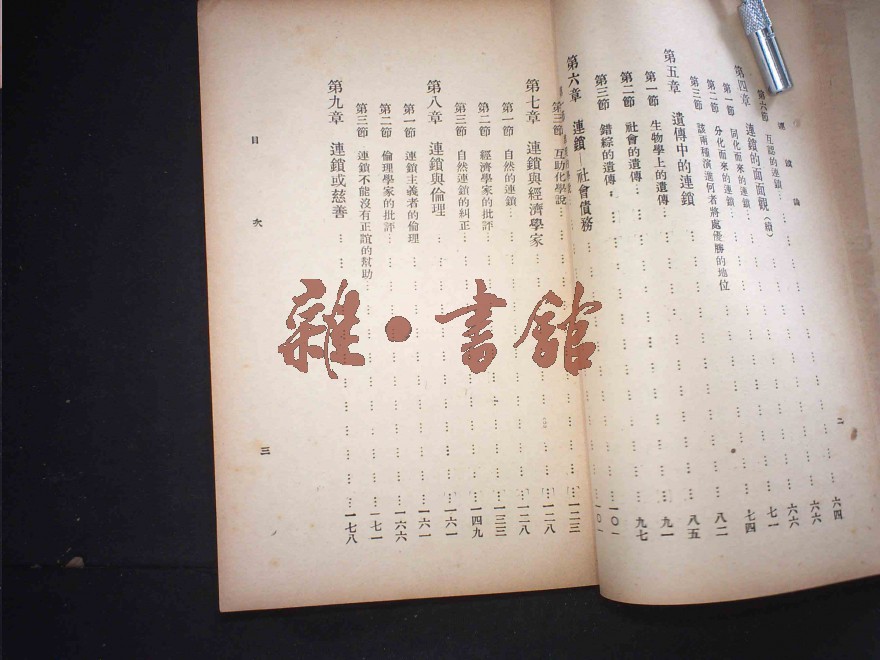 連鎖論
二
第六節 互認的連鎖…………六六
第四章 連鎖的面面觀(續)…………六六
第一節 同化而來的連鎖…………七一
第二節 分化而來的連鎖…………七四
第三節 該兩種演進何者將處優勝的地位…………八二
第五章 遺傳中的連鎖…………八五
第一節 生物學上的遺傳…………九一
第二節 社會的遺傳…………九七
第三節 錯綜的遺傳…………一〇一
第六章 連鎖—社會債務…………一〇一
第三節 互助化學說…………一二三
第七章 連鎖與經濟學家…………一二八
第一節 自然的連鎖…………一二八
第二節 經濟學家的批評…………一三三
第三節 自然連鎖的糾正…………一四九
第八章 連鎖與倫理…………一六一
第一節 連鎖主義者的倫理…………一六一
第二節 倫理學家的批評…………一六六
第三節 連鎖不能沒有正誼的幫助…………一七一
第九章 連鎖或慈善…………一七八
目次
三
雜·書館